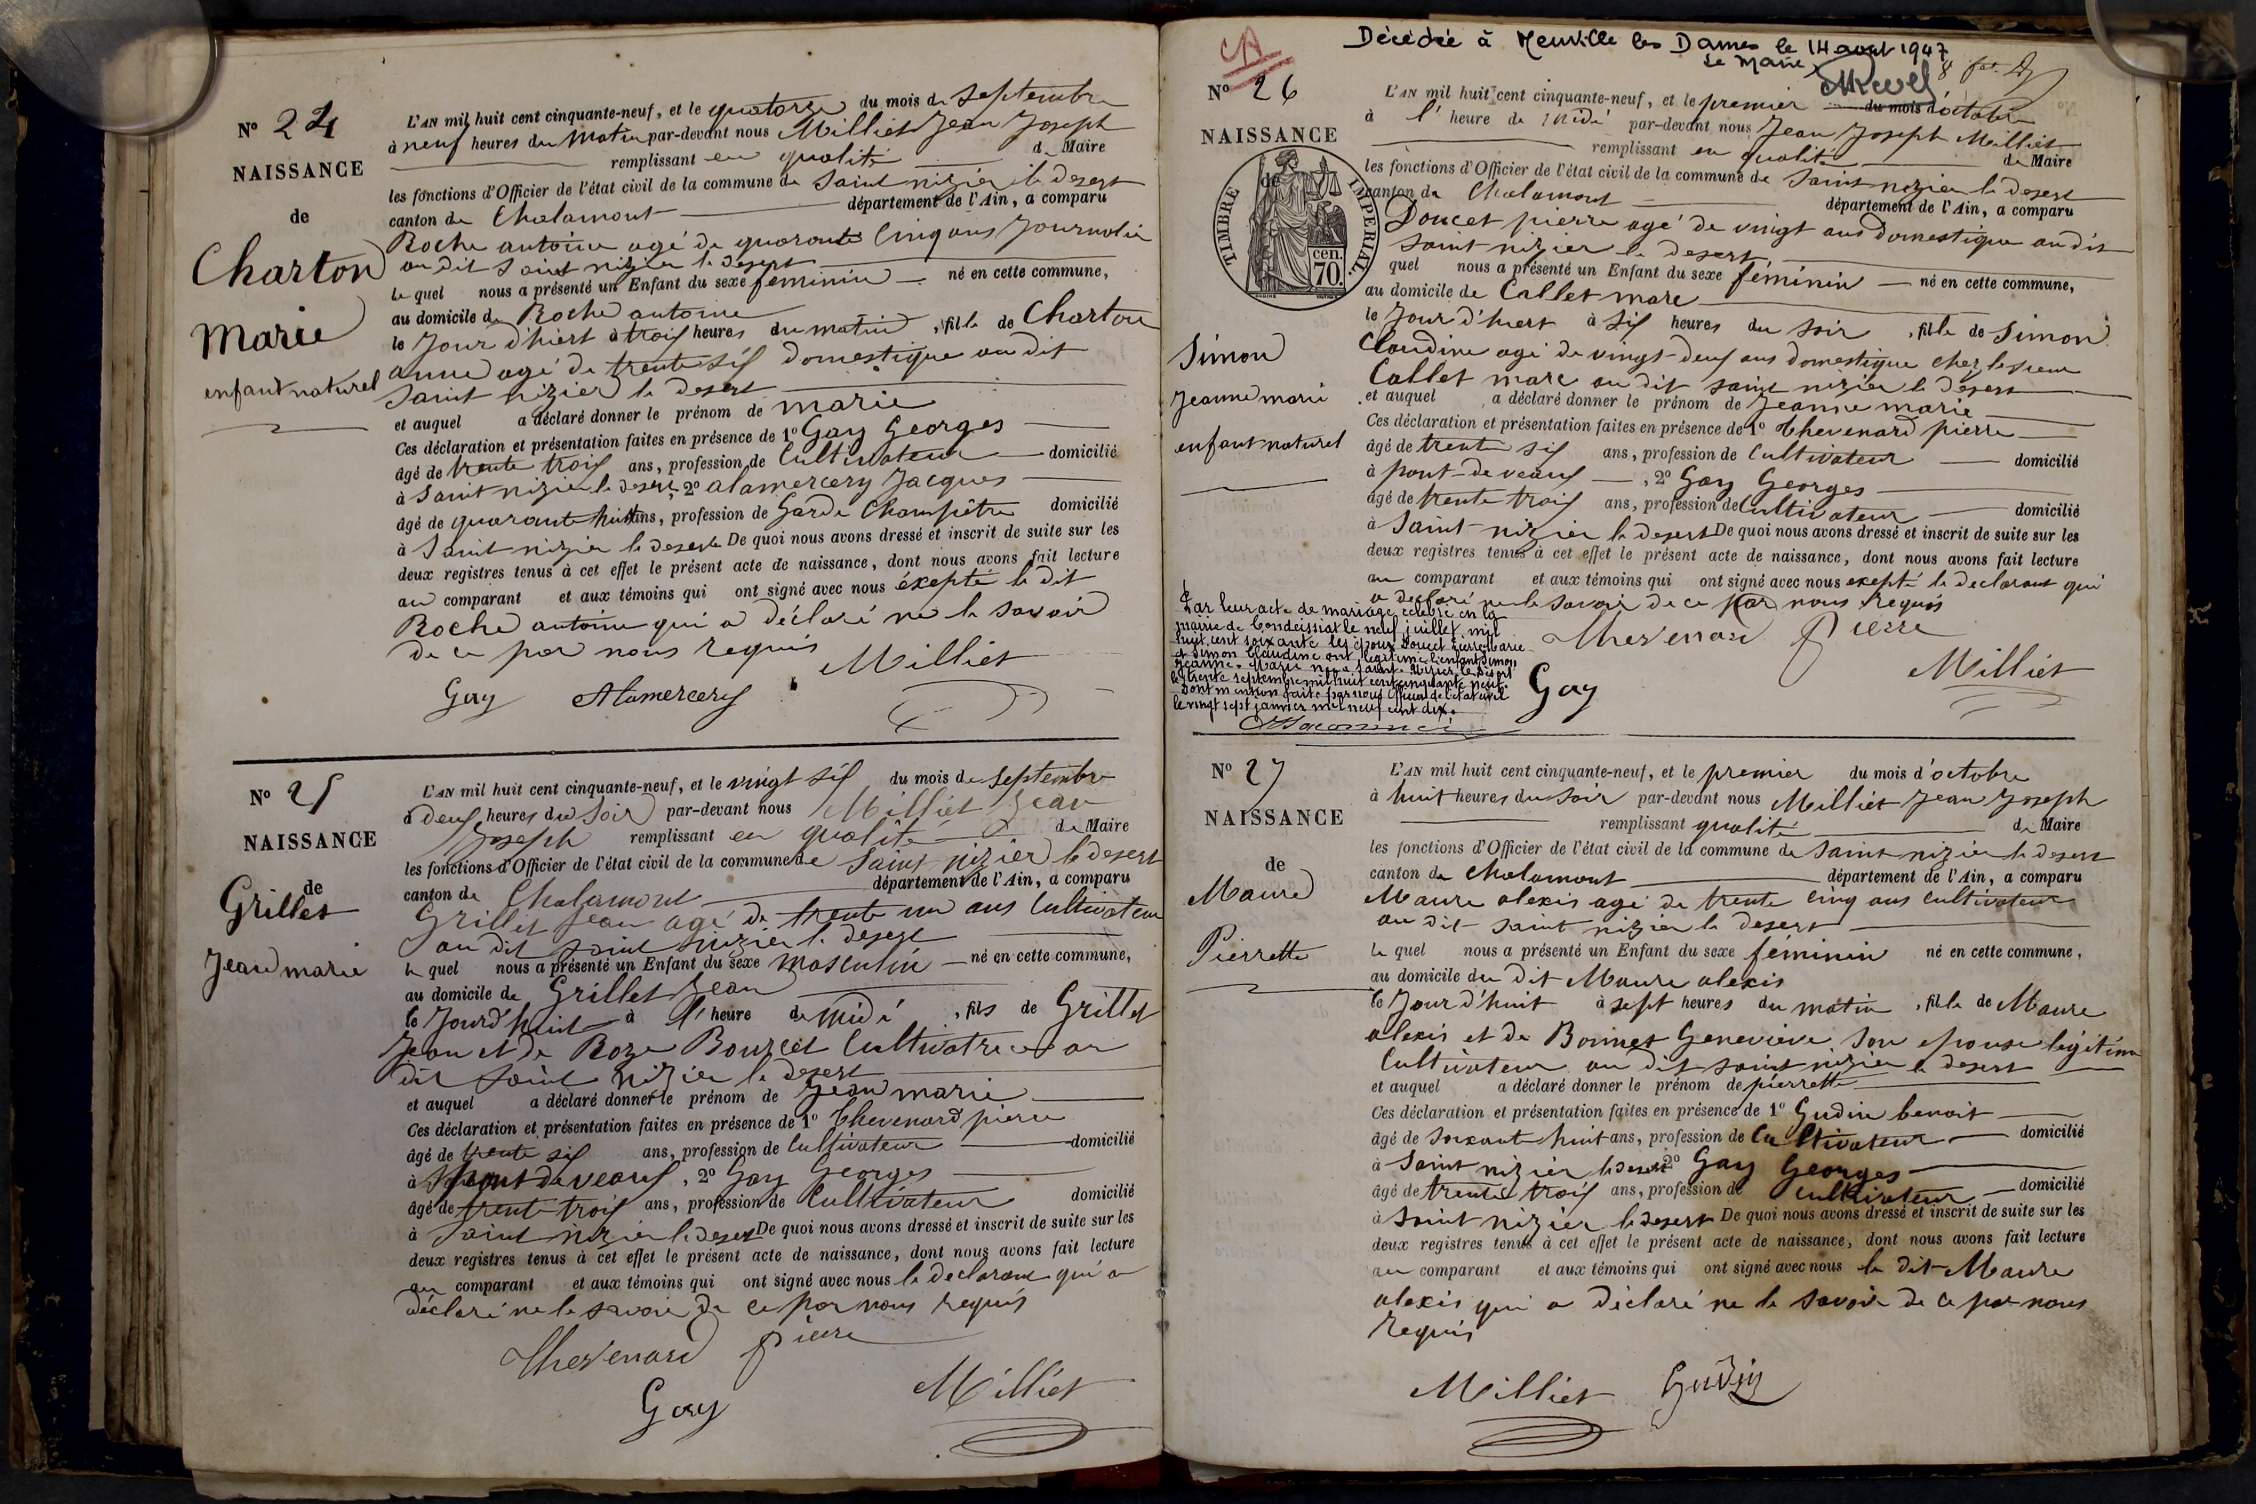 N° 24
NAISSANCE
de
Charton
Marie
enfant naturel
L'AN mil huit cent cinquante-neuf, et le quatorze du mois de septembre
à neuf heures du matin par-devant nous Milliet Jean Joseph
remplissant en qualité de Maire
les fonctions d'Officier de l'état civil de la commune de Saint nizier le desert
canton de Chalamont département de l'Ain, a comparu
Roche antoine agé de quarante Cinq ans Journalie
au dit Saint nizier le desert
le quel nous a présenté un Enfant du sexe féminin né en cette commune,
au domicile de Roche antoine
le Jour d'hiert à trois heures du matin, fille de Charton
anne agé de trente six domestique au dit
Saint nizier le desert
et auquel a déclaré donner le prénom de marie
Ces déclaration et présentation faites en présence de 1° Gay Georges
âgé de trente trois ans, profession de Cultivateur domicilié
à Saint nizier le desert, 2° alamercery Jacques
âgé de quarante huit ans, profession de Garde Champêtre domicilié
à Saint nizier le desert De quoi nous avons dressé et inscrit de suite sur les
deux registres tenus à cet effet le présent acte de naissance, dont nous avons fait lecture
au comparant et aux témoins qui ont signé avec nous éxepté le dit
Roche antoine qui a déclaré ne le savoir
de ce par nous requis
Milliet
Gay Alamercery
N° 25
NAISSANCE
de
Grillet
Jean marie
L'AN mil huit cent cinquante-neuf, et le vingt six du mois de septembre
à deux heures du Soir par-devant nous Milliet Jean
Joseph remplissant en qualité de Maire
les fonctions d'Officier de l'état civil de la commune de Saint nizier le desert
canton de Chalamont département de l'Ain, a comparu
Grillet Jean agé de trente un ans Cultivateur
au dit Saint nizier le desert
le quel nous a présenté un Enfant du sexe masculin né en cette commune,
au domicile de Grillet Jean
le Jourd'huit à l'heure de midi, fils de Grillet
Jean et de Roze Bouzcet Cultivatrice au
dit Saint nizier le desert
et auquel a déclaré donner le prénom de Jean marie
Ces déclaration et présentation faites en présence de 1° Chevenard pierre
âgé de trente six ans, profession de Cultivateur domicilié
à pont de veaux, 2° Gay Georges
âgé de trente trois ans, profession de Cultivateur domicilié
à Saint nizier le desert De quoi nous avons dressé et inscrit de suite sur les
deux registres tenus à cet effet le présent acte de naissance, dont nous avons fait lecture
au comparant et aux témoins qui ont signé avec nous le declarant qui a
déclaré ne le savoir de ce par nous requis
Chevenard pierre
Gay Milliet
Décédée à Neuville les Dames le 14 avril 1947
Le Maire
N° 26
NAISSANCE
de
TIMBRE IMPERIAL.
70 cen.
Simon
Jeanne marie
enfant naturel
L'AN mil huit cent cinquante-neuf, et le premier du mois d'octobre
à l'heure de midi par-devant nous Jean Joseph Milliet
remplissant en qualité de Maire
les fonctions d'Officier de l'état civil de la commune de Saint nizier le desert
canton de Chalamont département de l'Ain, a comparu
Doucet pierre agé de vingt ans domestique au dit
Saint nizier le desert
quel nous a présenté un Enfant du sexe féminin né en cette commune,
au domicile de Callet marc
le Jour d'hiert à six heures du soir, fille de Simon
Claudine agé de vingt-deux ans domestique chez le sieur
Callet marc au dit saint nizier le désert
et auquel a déclaré donner le prénom de Jeanne marie
Ces déclaration et présentation faites en présence de 1° Chevenard pierre
âgé de trente six ans, profession de Cultivateur domicilié
à pont-de veaux, 2° Gay Georges
âgé de trente trois ans, profession de Cultivateur domicilié
à Saint-nizier le desert De quoi nous avons dressé et inscrit de suite sur les
deux registres tenus à cet effet le présent acte de naissance, dont nous avons fait lecture
au comparant et aux témoins qui ont signé avec nous exepté le declarant qui
a declaré ne le savoir de ce par nous requis
Par leur acte de mariage célébré en la
mairie de Condeissiat le neuf juillet mil
huit cent soixante les époux Doucet Pierre Marie
et Simon Claudine ont légitimé l'enfant Simon
Jeanne-Marie née à Saint-Nizier le Désert
le trente septembre mil huit cent cinquante neuf.
Dont mention faite par nous Officier de l'état civil
le vingt sept janvier mil neuf cent dix.
Chevenard pierre
Gay Milliet
N° 27
NAISSANCE
de
Maure
Pierrette
L'AN mil huit cent cinquante-neuf, et le premier du mois d'octobre
à huit heures du soir par-devant nous Milliet Jean Joseph
remplissant qualité de Maire
les fonctions d'Officier de l'état civil de la commune de Saint nizier le desert
canton de Chalamont département de l'Ain, a comparu
Maure alexis agé de trente cinq ans cultivateur
au dit saint nizier le desert
le quel nous a présenté un Enfant du sexe féminin né en cette commune,
au domicile du dit Maure alexis
le Jour d'huit à sept heures du matin, fille de Maure
alexis et de Bonnet Geneviève son epouse légitime
Cultivateur au dit saint nizier le desert
et auquel a déclaré donner le prénom de pierrette
Ces déclaration et présentation faites en présence de 1° Gudin benoit
âgé de soixante huit ans, profession de Cultivateur domicilié
à Saint nizier le desert 2° Gay Georges
âgé de trente trois ans, profession de Cultivateur domicilié
à Saint nizier le desert De quoi nous avons dressé et inscrit de suite sur les
deux registres tenus à cet effet le présent acte de naissance, dont nous avons fait lecture
au comparant et aux témoins qui ont signé avec nous le dit Maure
alexis qui a déclaré ne le savoir de ce par nous
requis
Milliet Gudin